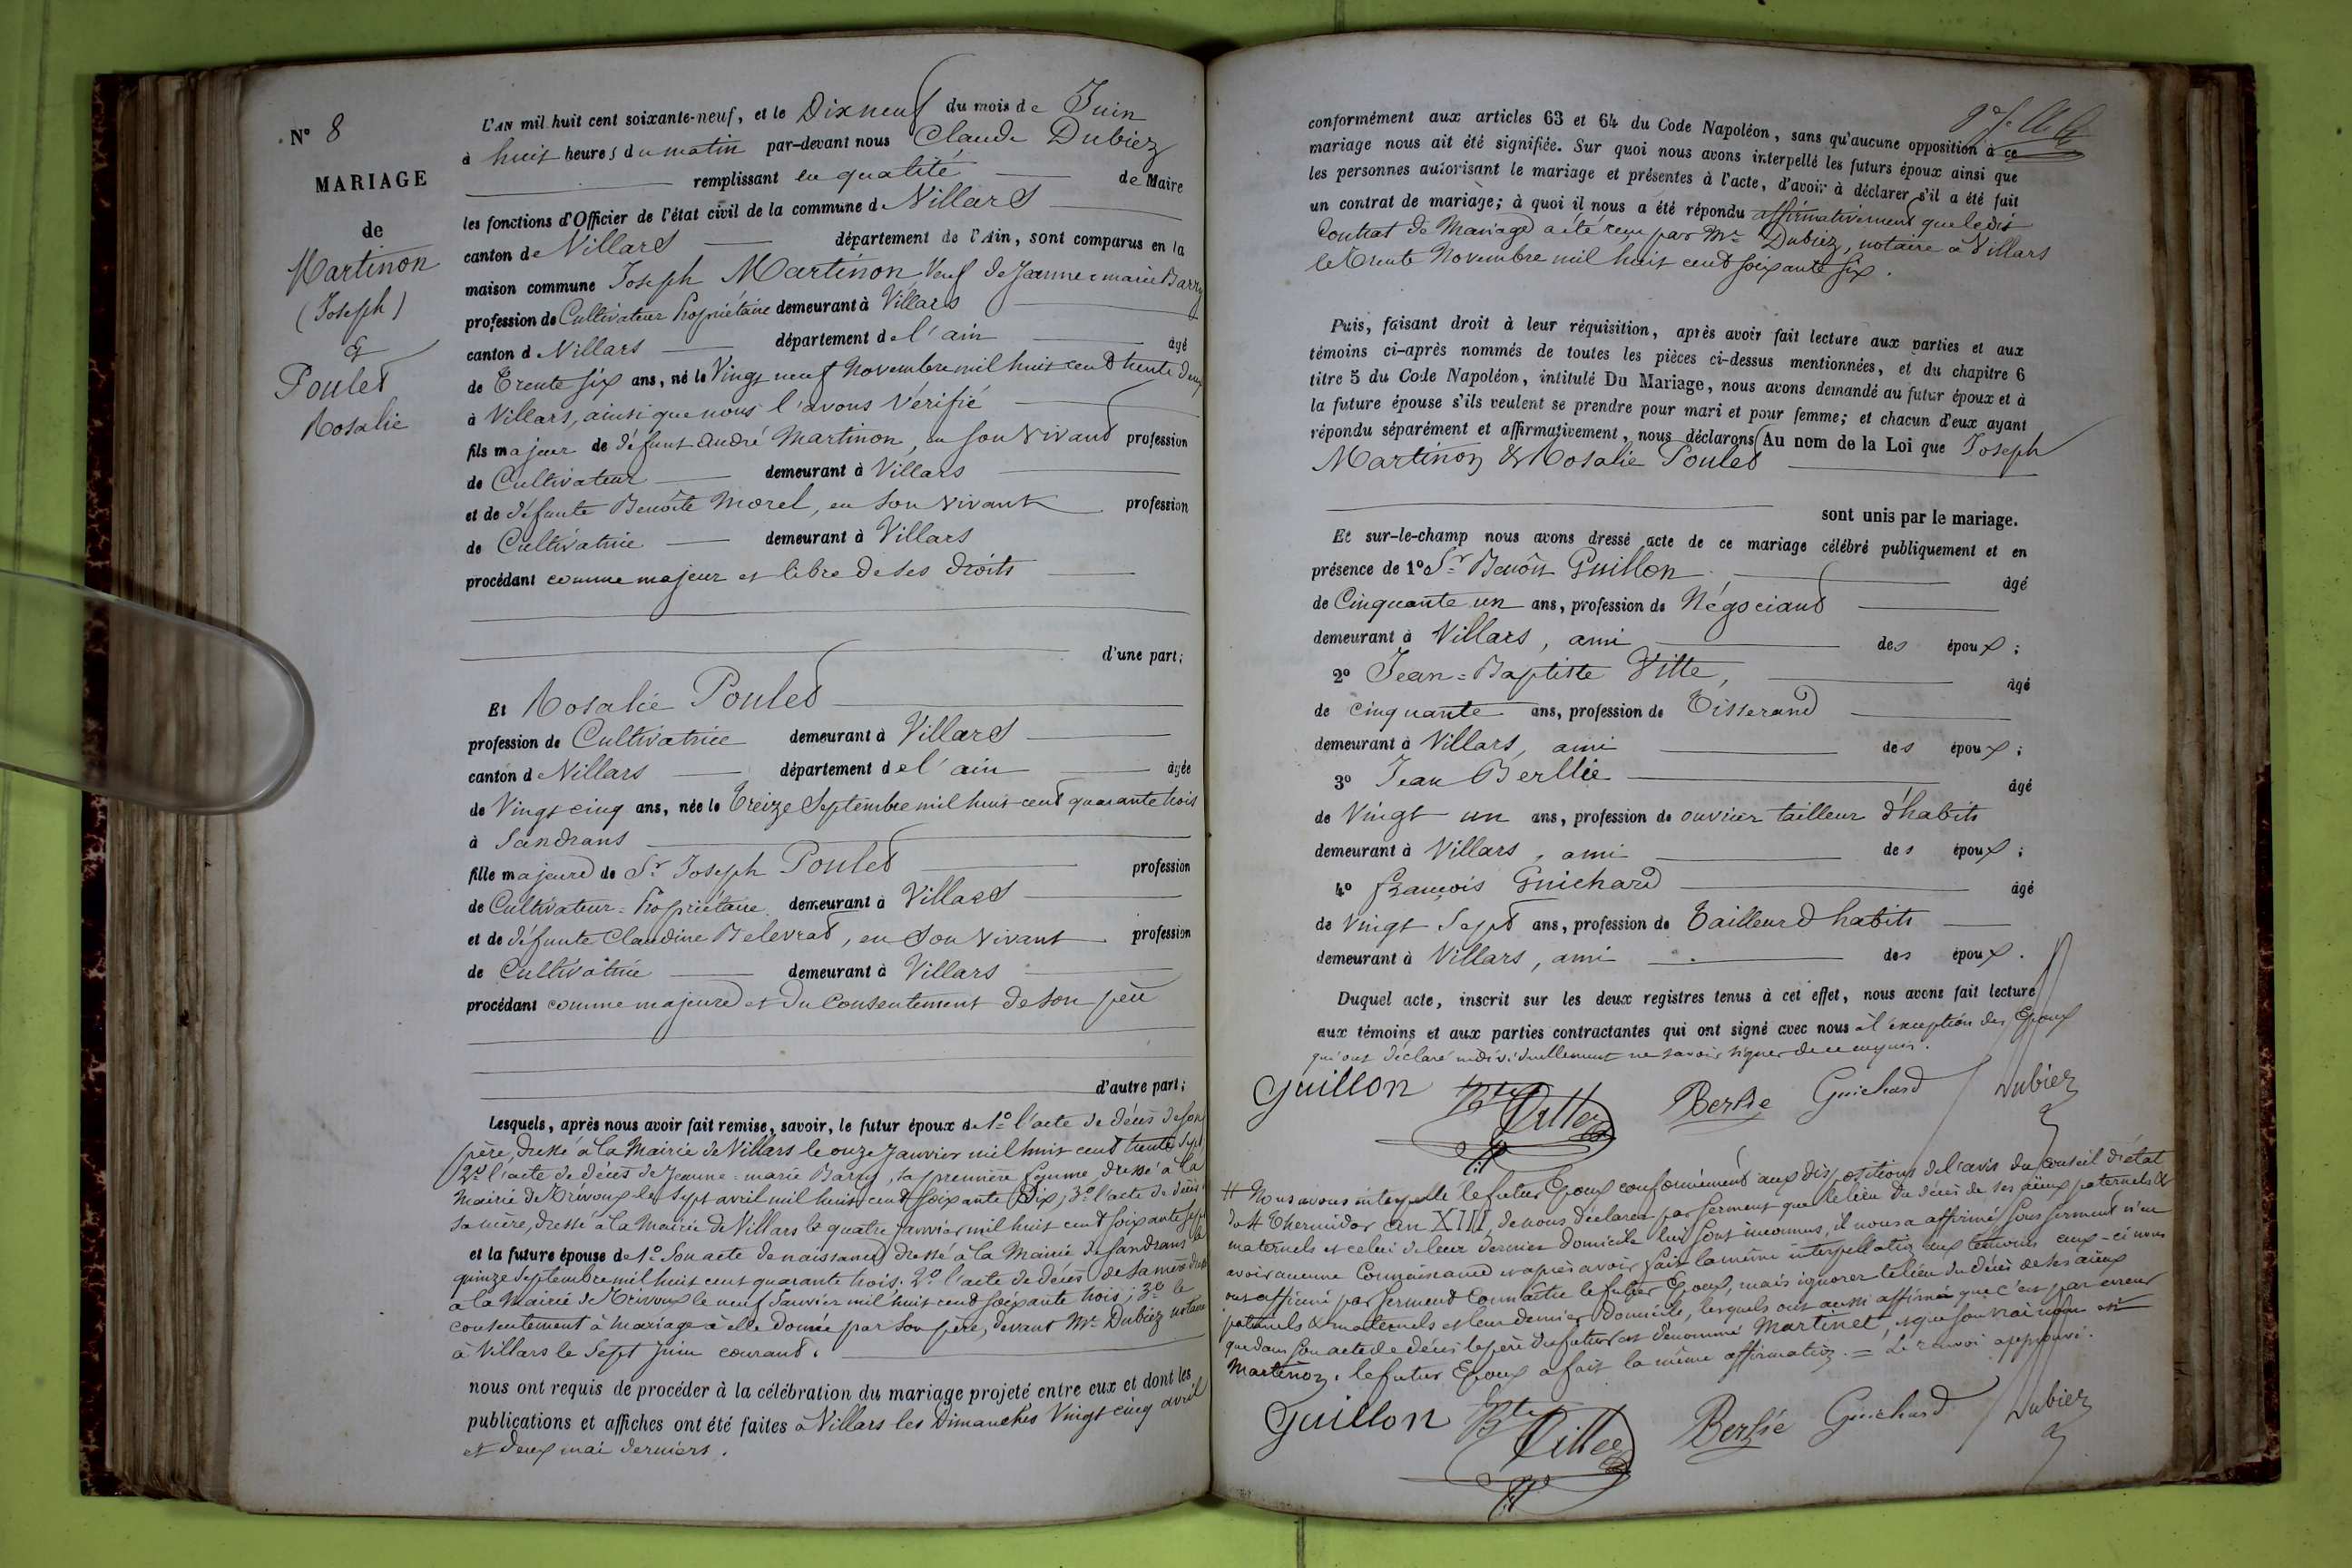 N° 8
MARIAGE
de
Martinon
(Joseph)
&
Poulet
Rosalie
L'AN mil huit cent soixante-neuf, et le Dix neuf du mois de Juin
à huit heures du matin par-devant nous Claude Dubiez
remplissant en qualité de Maire
les fonctions d'Officier de l'état civil de la commune de Villars
canton de Villars département de l'Ain, sont comparus en la
maison commune Joseph Martinon, Veuf de Jeanne-marie Barry
profession de Cultivateur Propriétaire demeurant à Villars
canton de Villars département de l'ain âgé
de Trente six ans, né le Vingt neuf Novembre mil huit cent trente deux
à Villars, ainsi que nous l'avons Vérifié
fils majeur de défunt André Martinon, en son vivant profession
de Cultivateur demeurant à Villars
et de défunte Benoîte Morel, en son vivant profession
de Cultivatrice demeurant à Villars
procédant comme majeur et libre de ses droits
d'une part;
Et Rosalie Poulet
profession de Cultivatrice demeurant à Villars
canton de Villars département de l'ain âgée
de Vingt cinq ans, née le Treize Septembre mil huit cent quarante trois
à Sandrans
fille majeure de Sr Joseph Poulet profession
de Cultivateur-Propriétaire demeurant à Villars
et de défunte Claudine Belevrat, en son vivant profession
de Cultivatrice demeurant à Villars
procédant comme majeure et du Consentement de son père
d'autre part;
Lesquels, après nous avoir fait remise, savoir, le futur époux de 1° l'acte de décès de son
père, dressé à la Mairie de Villars le onze Janvier mil huit cent trente sept
2° l'acte de décès de Jeanne-marie Barry, sa première femme, dressé à la
Mairie de Trévoux le sept avril mil huit cent soixante Six; 3° l'acte de décès
sa mère, dressé à la Mairie de Villars le quatre Janvier mil huit cent soixante sept
et la future épouse de 1° Son acte de naissance dressé à la Mairie de Sandrans le
quinze Septembre mil huit cent quarante trois; 2° l'acte de décès de sa mère dressé
à la Mairie de Trévoux le neuf Janvier mil huit cent soixante trois; 3° le
consentement à mariage à elle donnée par son père, devant Me Dubiez notaire
à Villars le Sept Juin courant.
nous ont requis de procéder à la célébration du mariage projeté entre eux et dont les
publications et affiches ont été faites à Villars les Dimanches Vingt cinq avril
et deux mai derniers.
conformément aux articles 63 et 64 du Code Napoléon, sans qu'aucune opposition à ce
mariage nous ait été signifiée. Sur quoi nous avons interpellé les futurs époux ainsi que
les personnes autorisant le mariage et présentes à l'acte, d'avoir à déclarer s'il a été fait
un contrat de mariage; à quoi il nous a été répondu affirmativement que ledit
Contrat de Mariage a été reçu par Me Dubiez, notaire à Villars
le Trente Novembre mil huit cent soixante six.
Puis, faisant droit à leur réquisition, après avoir fait lecture aux parties et aux
témoins ci-après nommés de toutes les pièces ci-dessus mentionnées, et du chapitre 6
titre 5 du Code Napoléon, intitulé Du Mariage, nous avons demandé au futur époux et à
la future épouse s'ils veulent se prendre pour mari et pour femme; et chacun d'eux ayant
répondu séparément et affirmativement, nous déclarons Au nom de la Loi que Joseph
Martinon & Rosalie Poulet
sont unis par le mariage.
Et sur-le-champ nous avons dressé acte de ce mariage célébré publiquement et en
présence de 1° Sr Benoît Guillon âgé
de Cinquante un ans, profession de Négociant
demeurant à Villars, ami des époux;
2° Jean-Baptiste Vitte, âgé
de cinquante ans, profession de Tisserand
demeurant à Villars, ami des époux;
3° Jean Berllie âgé
de Vingt un ans, profession de ouvrier tailleur d'habits
demeurant à Villars, ami des époux;
4° François Guichard âgé
de Vingt Sept ans, profession de Tailleur d'habits
demeurant à Villars, ami des époux.
Duquel acte, inscrit sur les deux registres tenus à cet effet, nous avons fait lecture
aux témoins et aux parties contractantes qui ont signé avec nous à l'exception des Epoux
qui ont déclaré individuellement ne savoir signer de ce enquis.
Guillon Bte Vitte Berlie Guichard Dubiez
# Nous avons interpellé le futur Epoux conformément aux dispositions de l'avis du Conseil d'état
du 4 Thermidor an XIII, de nous déclarer par serment que le lieu du décès de ses aïeux paternels &
maternels et celui de leur dernier domicile lui sont inconnus, il nous a affirmé sous serment n'en
avoir aucune Connaissance et après avoir fait la même interpellation aux témoins ceux-ci nous
ont affirmé par serment Connaître le futur Epoux, mais ignorer le lieu du décès de ses aïeux
paternels & maternels et leur dernier domicile, lesquels ont aussi affirmé que c'est par erreur
que dans son acte de décès le père du futur est dénommé Martinet, et que son vrai nom est
Martinon. le futur Epoux a fait la même affirmation. = Le renvoi approuvé.
Guillon Bte Vitte Berlie Guichard Dubiez